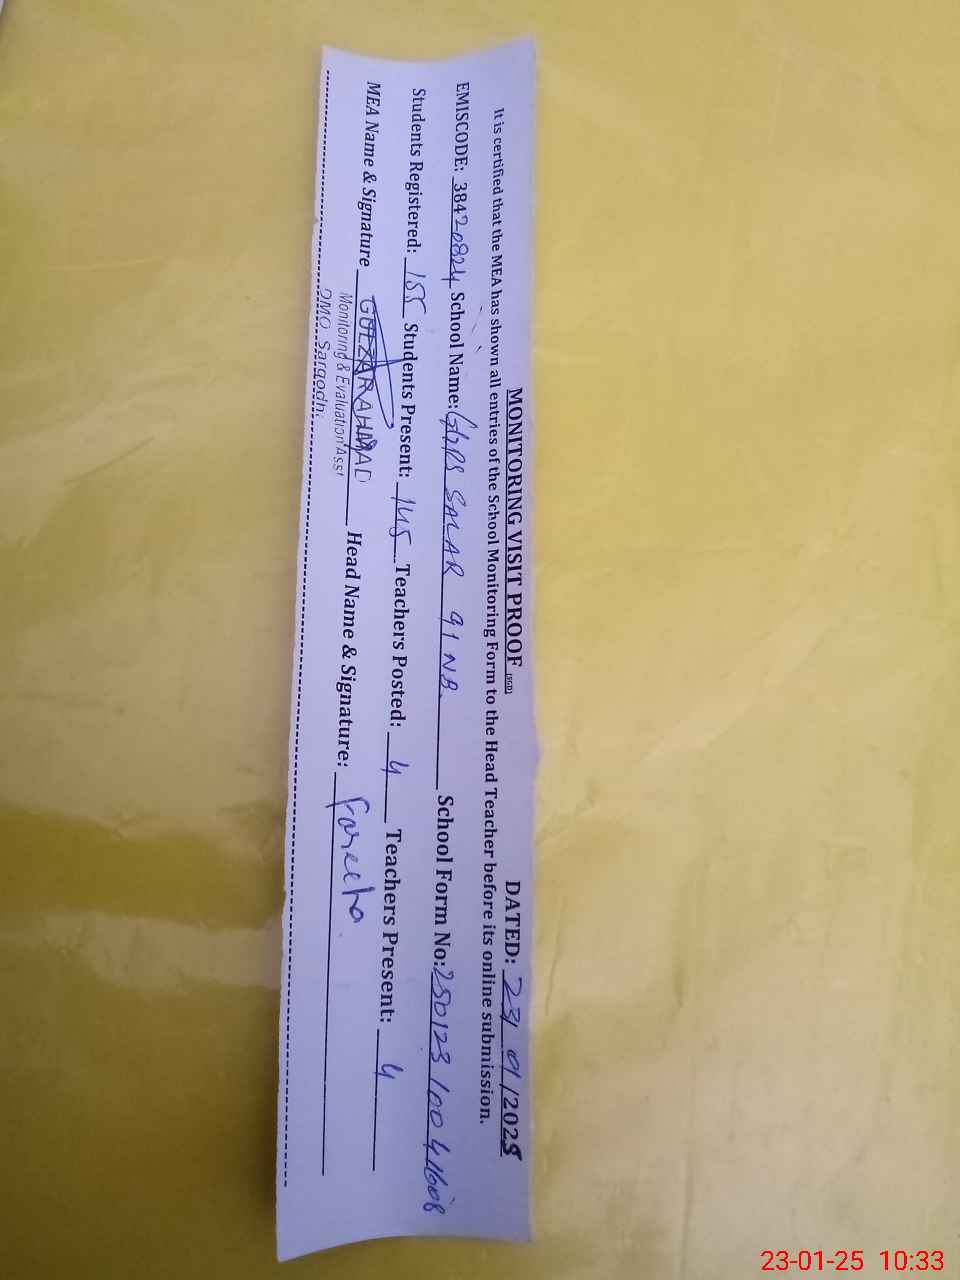 MONITORING VISIT PROOF (SGD) DATED: 23/01/2025
It is certified that the MEA has shown all entries of the School Monitoring Form to the Head Teacher before its online submission.
EMISCODE: 38420824 School Name: GGPS SALAR 91 NB. School Form No: 250123100 41608
Students Registered: 155 Students Present: 145 Teachers Posted: 4 Teachers Present: 4
MEA Name & Signature GULZAR AHMAD Head Name & Signature: Fareeha.
Monitoring & Evaluation Asst
DMO Sargodh
23-01-25 10:33